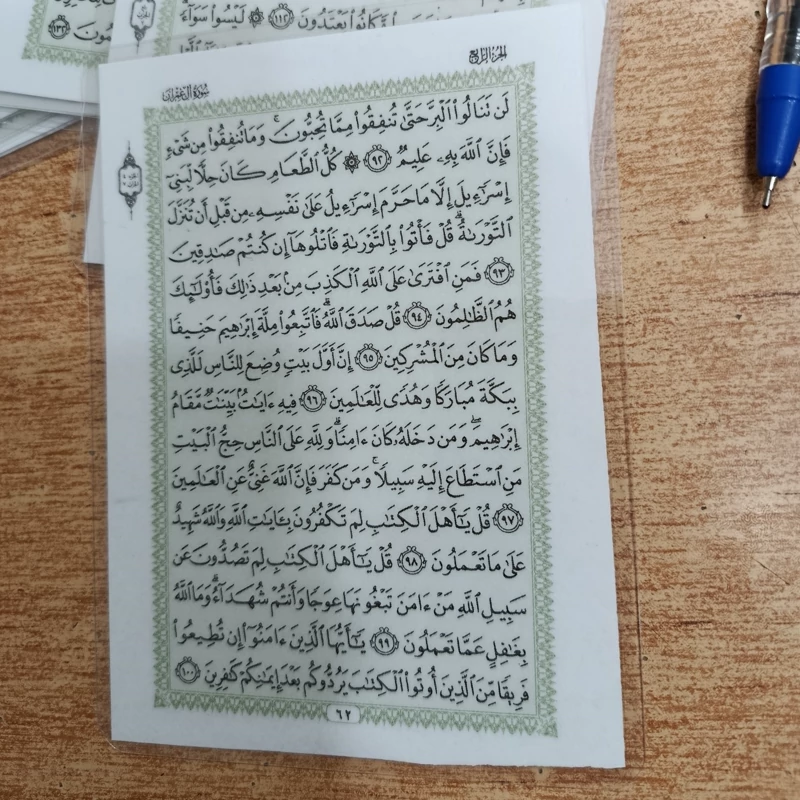 كَانُوا۟ يَعْتَدُونَ ١١٢ لَيْسُوا۟ سَوَآءً
١٣٢
سُورَةُ آلِ عِمْرَان
الجُزْءُ الرَّابِعُ
لَن تَنَالُوا۟ ٱلْبِرَّ حَتَّىٰ تُنفِقُوا۟ مِمَّا تُحِبُّونَ ۚ وَمَا تُنفِقُوا۟ مِن شَىْءٍ
فَإِنَّ ٱللَّهَ بِهِۦ عَلِيمٌ ٩٢ ۞ كُلُّ ٱلطَّعَامِ كَانَ حِلًّا لِّبَنِىٓ
إِسْرَٰٓءِيلَ إِلَّا مَا حَرَّمَ إِسْرَٰٓءِيلُ عَلَىٰ نَفْسِهِۦ مِن قَبْلِ أَن تُنَزَّلَ
ٱلتَّوْرَىٰةُ ۗ قُلْ فَأْتُوا۟ بِٱلتَّوْرَىٰةِ فَٱتْلُوهَآ إِن كُنتُمْ صَٰدِقِينَ
٩٣ فَمَنِ ٱفْتَرَىٰ عَلَى ٱللَّهِ ٱلْكَذِبَ مِنۢ بَعْدِ ذَٰلِكَ فَأُو۟لَٰٓئِكَ
هُمُ ٱلظَّٰلِمُونَ ٩٤ قُلْ صَدَقَ ٱللَّهُ ۗ فَٱتَّبِعُوا۟ مِلَّةَ إِبْرَٰهِيمَ حَنِيفًا
وَمَا كَانَ مِنَ ٱلْمُشْرِكِينَ ٩٥ إِنَّ أَوَّلَ بَيْتٍ وُضِعَ لِلنَّاسِ لَلَّذِى
بِبَكَّةَ مُبَارَكًا وَهُدًى لِّلْعَٰلَمِينَ ٩٦ فِيهِ ءَايَٰتٌۢ بَيِّنَٰتٌ مَّقَامُ
إِبْرَٰهِيمَ ۖ وَمَن دَخَلَهُۥ كَانَ ءَامِنًا ۗ وَلِلَّهِ عَلَى ٱلنَّاسِ حِجُّ ٱلْبَيْتِ
مَنِ ٱسْتَطَاعَ إِلَيْهِ سَبِيلًا ۚ وَمَن كَفَرَ فَإِنَّ ٱللَّهَ غَنِىٌّ عَنِ ٱلْعَٰلَمِينَ
٩٧ قُلْ يَٰٓأَهْلَ ٱلْكِتَٰبِ لِمَ تَكْفُرُونَ بِـَٔايَٰتِ ٱللَّهِ وَٱللَّهُ شَهِيدٌ
عَلَىٰ مَا تَعْمَلُونَ ٩٨ قُلْ يَٰٓأَهْلَ ٱلْكِتَٰبِ لِمَ تَصُدُّونَ عَن
سَبِيلِ ٱللَّهِ مَنْ ءَامَنَ تَبْغُونَهَا عِوَجًا وَأَنتُمْ شُهَدَآءُ ۗ وَمَا ٱللَّهُ
بِغَٰفِلٍ عَمَّا تَعْمَلُونَ ٩٩ يَٰٓأَيُّهَا ٱلَّذِينَ ءَامَنُوٓا۟ إِن تُطِيعُوا۟
فَرِيقًا مِّنَ ٱلَّذِينَ أُوتُوا۟ ٱلْكِتَٰبَ يَرُدُّوكُم بَعْدَ إِيمَٰنِكُمْ كَٰفِرِينَ ١٠٠
٦٢